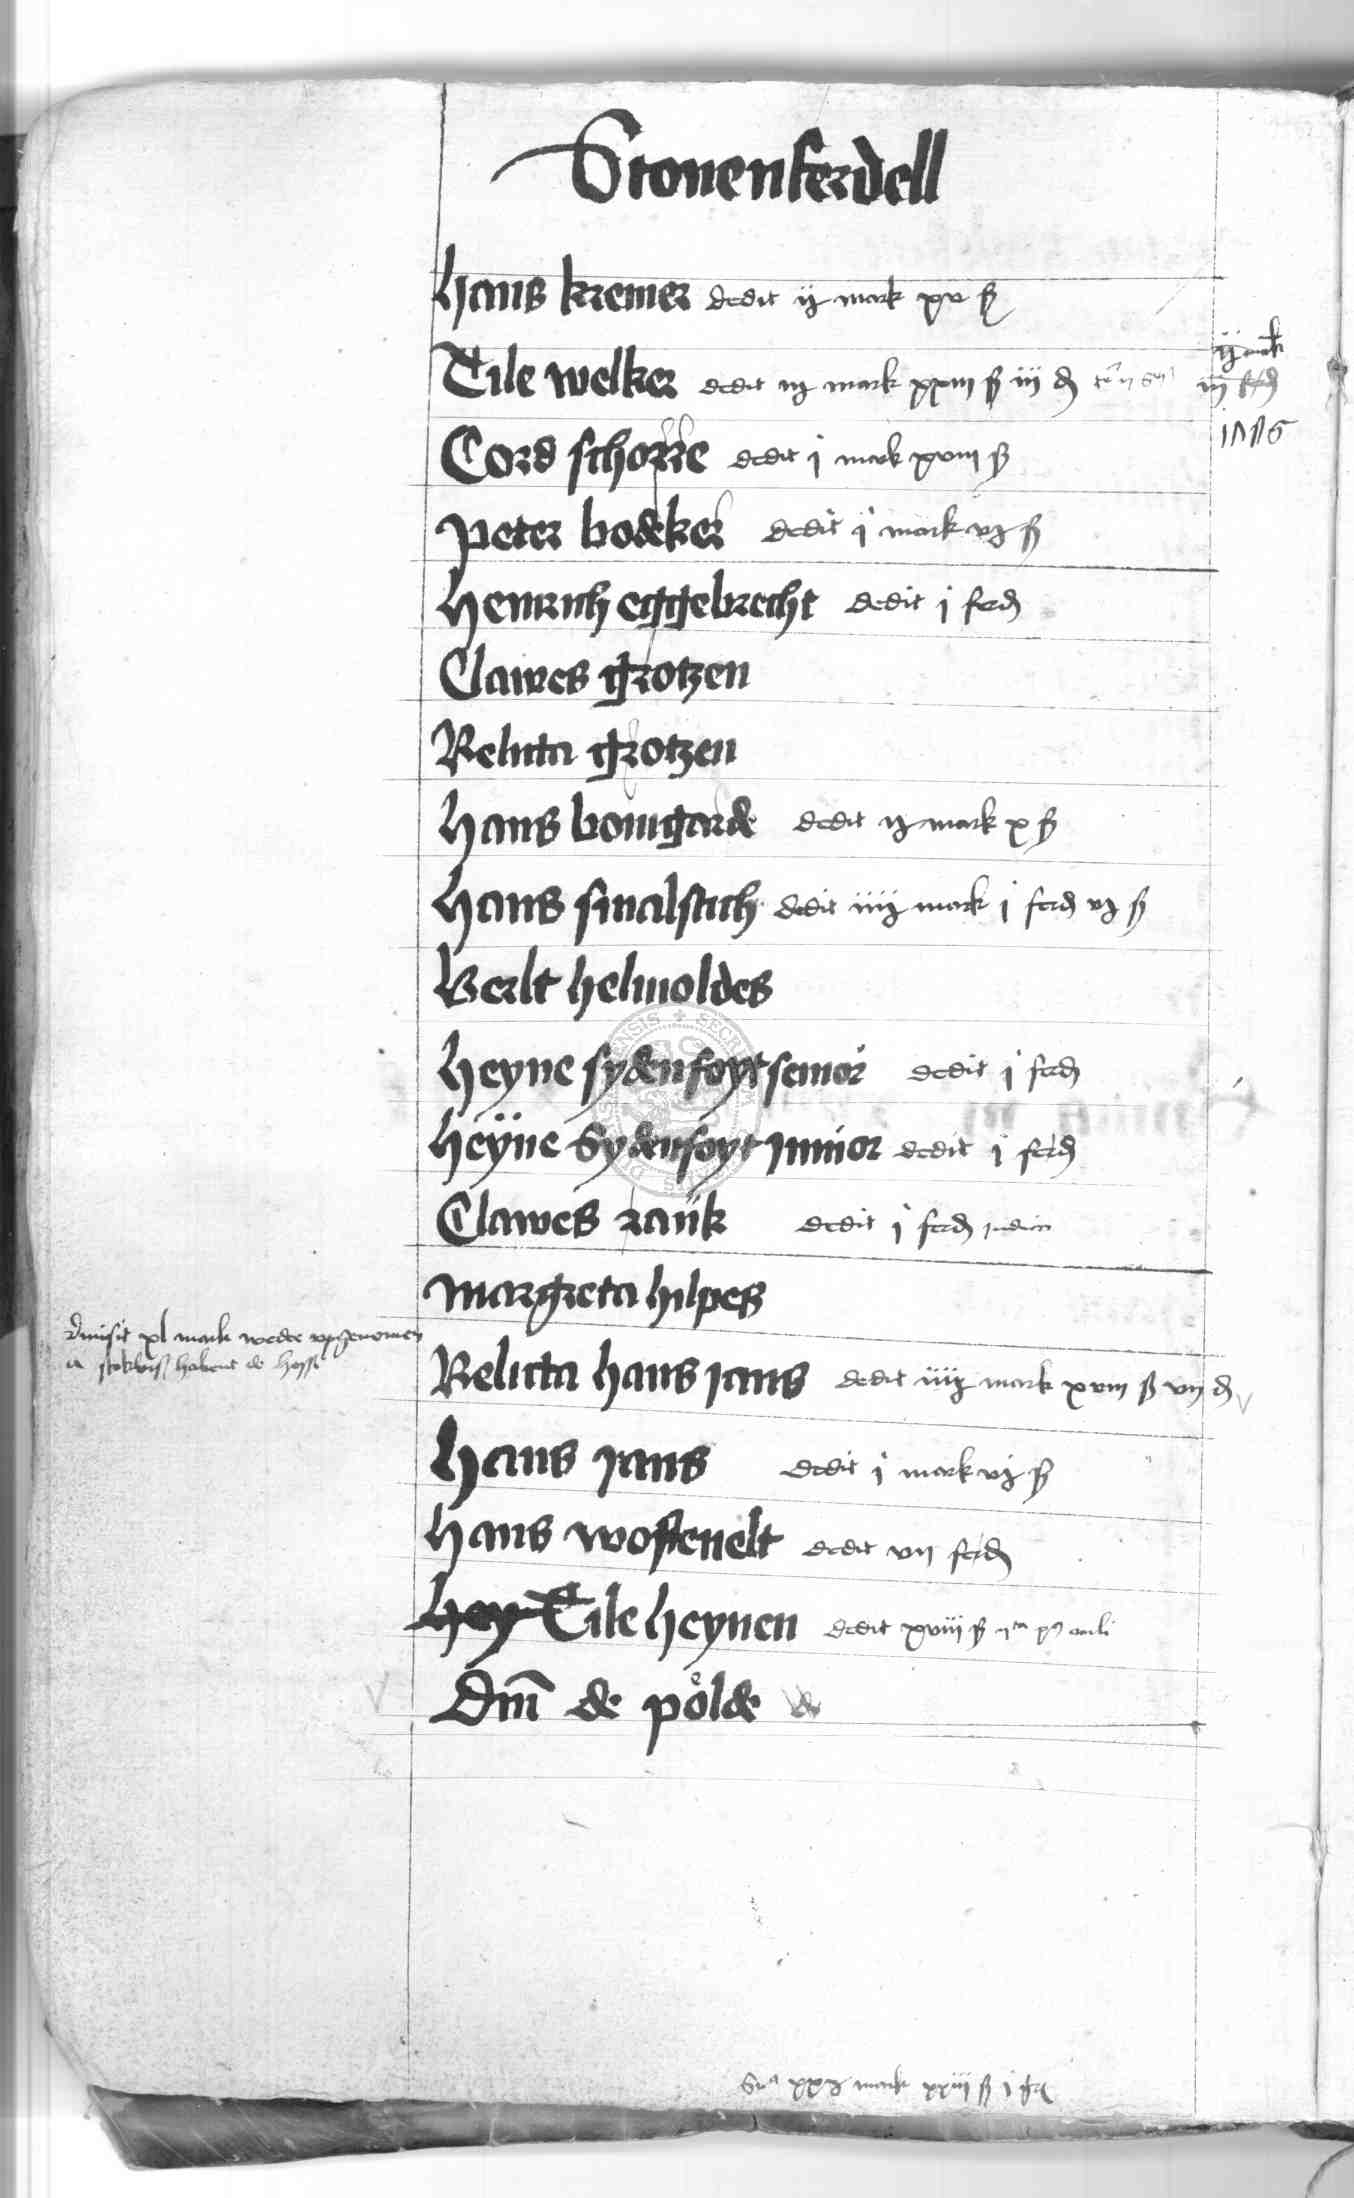 Stonenferdell
Hans kremer dedit ij mark xv ß
Tile welker dedit iij mark xxiii ß iii d
ij mark
iij ferd
Cord schorre dedit j mark xviii ß
Peter bodeker dedit j mark vj ß
Henrich eggebrecht dedit j ferd
Clawes grotzen
Relicta grotzen
Hans bomgarde dedit ij mark x ß
Hans smalstich dedit iiij mark j ferd vj ß
Berlt helmoldes
Heyne sydenfoyt senior dedit j ferd
Heÿne Sydenfoyt junior dedit j ferd
Clawes rauk dedit j ferd
Margreta hilpes
dimisit xl mark weder upgenomen
Relicta hans jans dedit iiij mark xviii ß vij d
Hans jans dedit j mark vj ß
Hans wostenelt dedit vij ferd
Hey Tile heynen dedit xviii ß
Dm̄ de pölde
Sua mark xxiii ß